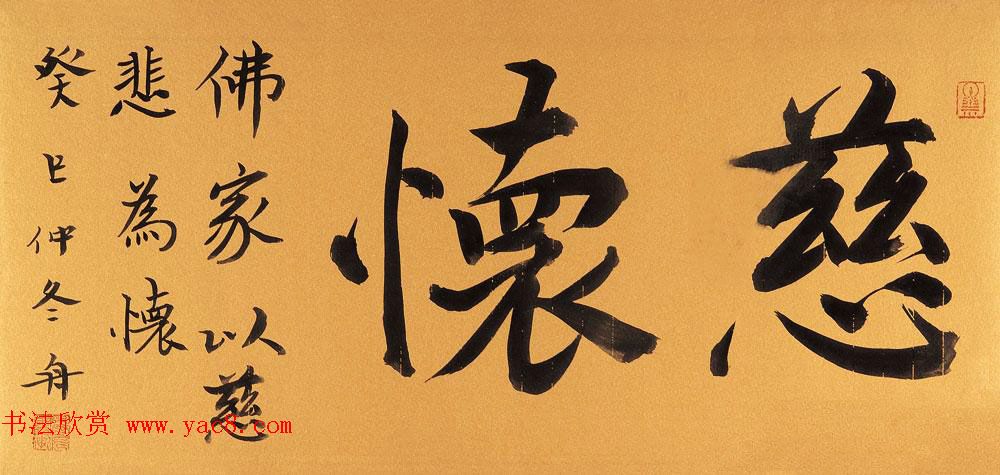 慈懷
佛家以慈
悲為懷
癸巳仲冬舟
书法欣赏 www.yac8.com